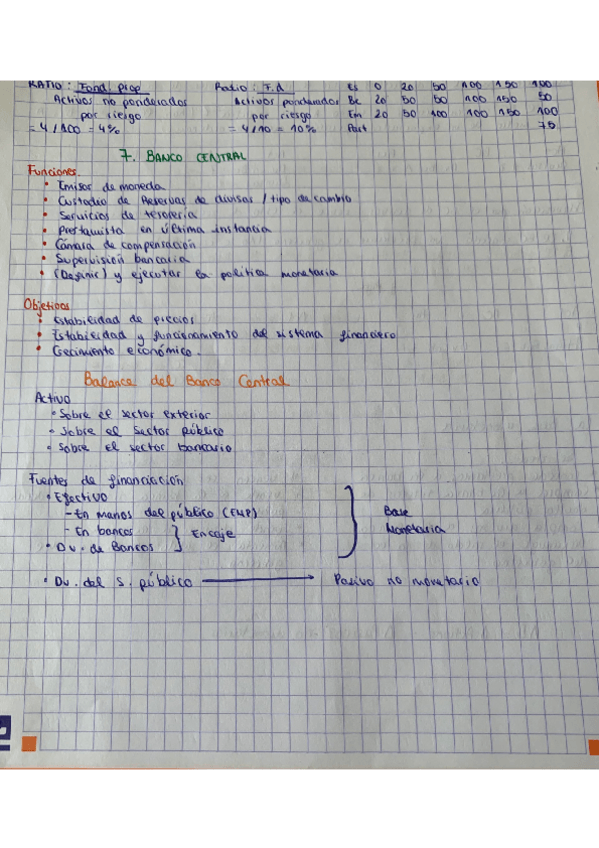 RATIO : Fond Prop Ratio : F.d Es 0 20 50 100 150 100
Activos no ponderados Activos ponderados Bc 20 50 50 100 150 50
por riesgo por riesgo Em 20 50 100 100 150 100
= 4/100 = 4% = 4/10 = 10% Part 75
7. BANCO CENTRAL
Funciones.
• Emisor de moneda
• Custodio de Reservas de divisas / tipo de cambio
• Servicios de tesorería
• Prestamista en última instancia
• Cámara de compensación
• Supervisión bancaria
• (Definir) y ejecutar la política monetaria
Objetivos
• Estabilidad de precios
• Estabilidad y funcionamiento del sistema financiero
• Crecimiento económico.
Balance del Banco Central
Activo
• Sobre el sector exterior
• Sobre el sector público
• Sobre el sector bancario
Fuentes de financiación
• Efectivo
- En manos del público (EMP) Base
- En bancos Encaje Monetaria
• Dv. de Bancos
• Dv. del S. público → Pasivo no monetario